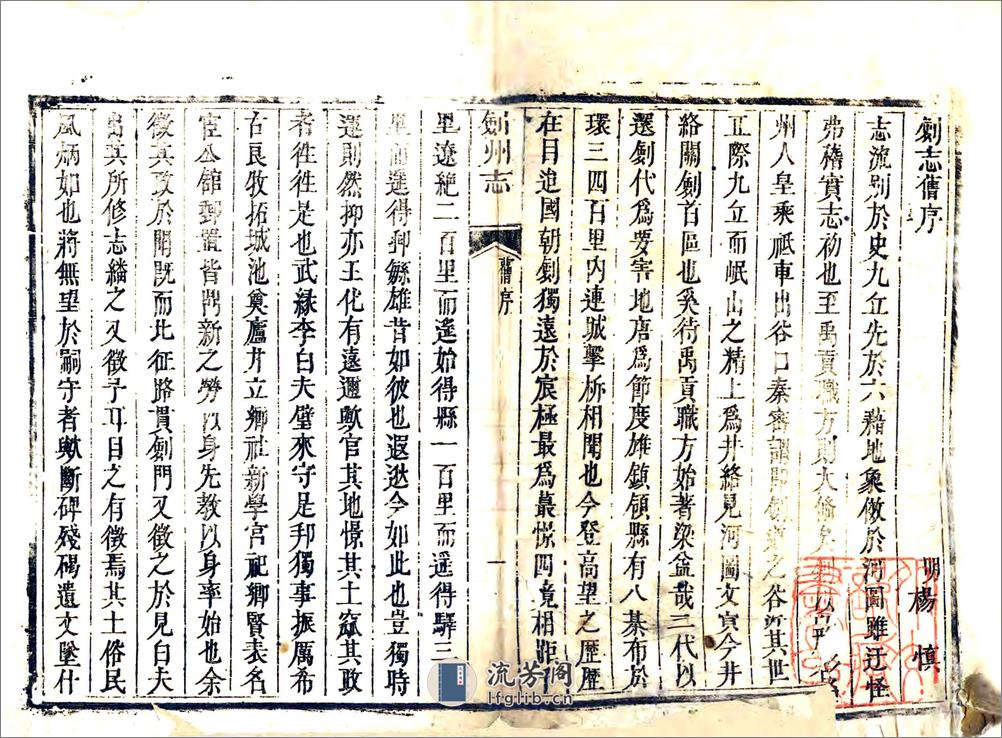 劍志舊序
明楊慎
志流別於史九丘先於六藉地象倣於河圖雖迂怪
弗稽實志初也至禹貢職方則大備矣
州人皇乘祗車出谷口秦宓謂即劍斜之谷前其世
正際九丘而岷山之精上爲井絡見河圖文寔今井
絡關劍首區也奚待禹貢職方始著梁益哉三代以
還劍代爲要害地唐爲節度雄鎮領縣有八棊布於
環三四百里內連城擊柝相聞也今登高望之歷歷
在目迨國朝劍獨遠於宸極最爲蕞憬四竟相距
劍州志
舊序
一
里遼絶二百里而遙始得縣一百里而遥得驛三
里而遥得郵繇雄昔如彼也遐逖今如此也豈獨時
運則然抑亦王化有遠邇歟官其地憬其土窳其政
者徃徃是也武緣李白夫璧來守是邦獨事振厲希
古良牧拓城池奠廬井立鄉社新學宮祀鄉賢表名
宦公館郵置皆鬥新之勞以身先教以身率始也余
徴其政於聞既而北征路貫劍門又徴之於見白夫
出其所修志繙之又徴予耳目之有徴焉其土俗民
風炳如也將無望於嗣守者歟斷碑殘碣遺文墜什
流芳阁
lfglib.cn